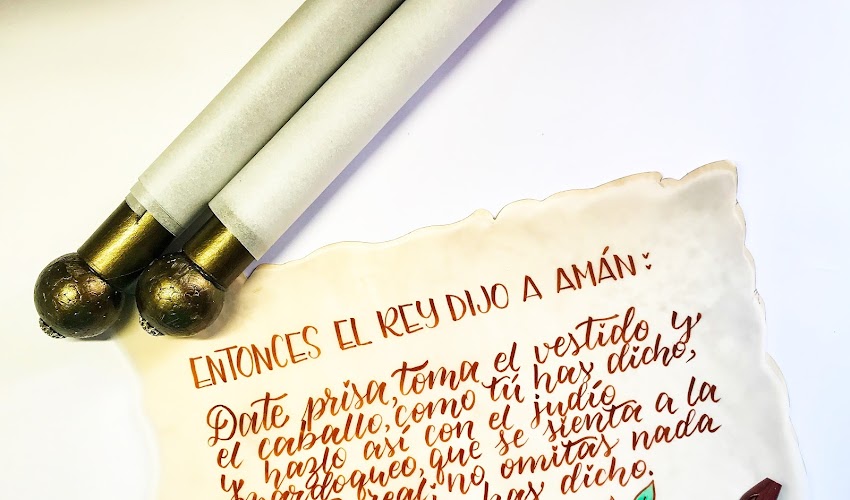 ENTONCES EL REY DIJO A AMÁN:
Date prisa, toma el vestido y
el caballo, como tú has dicho,
y hazlo así con el judío
mardoqueo, que se sienta a la
real; no omitas nada
has dicho.